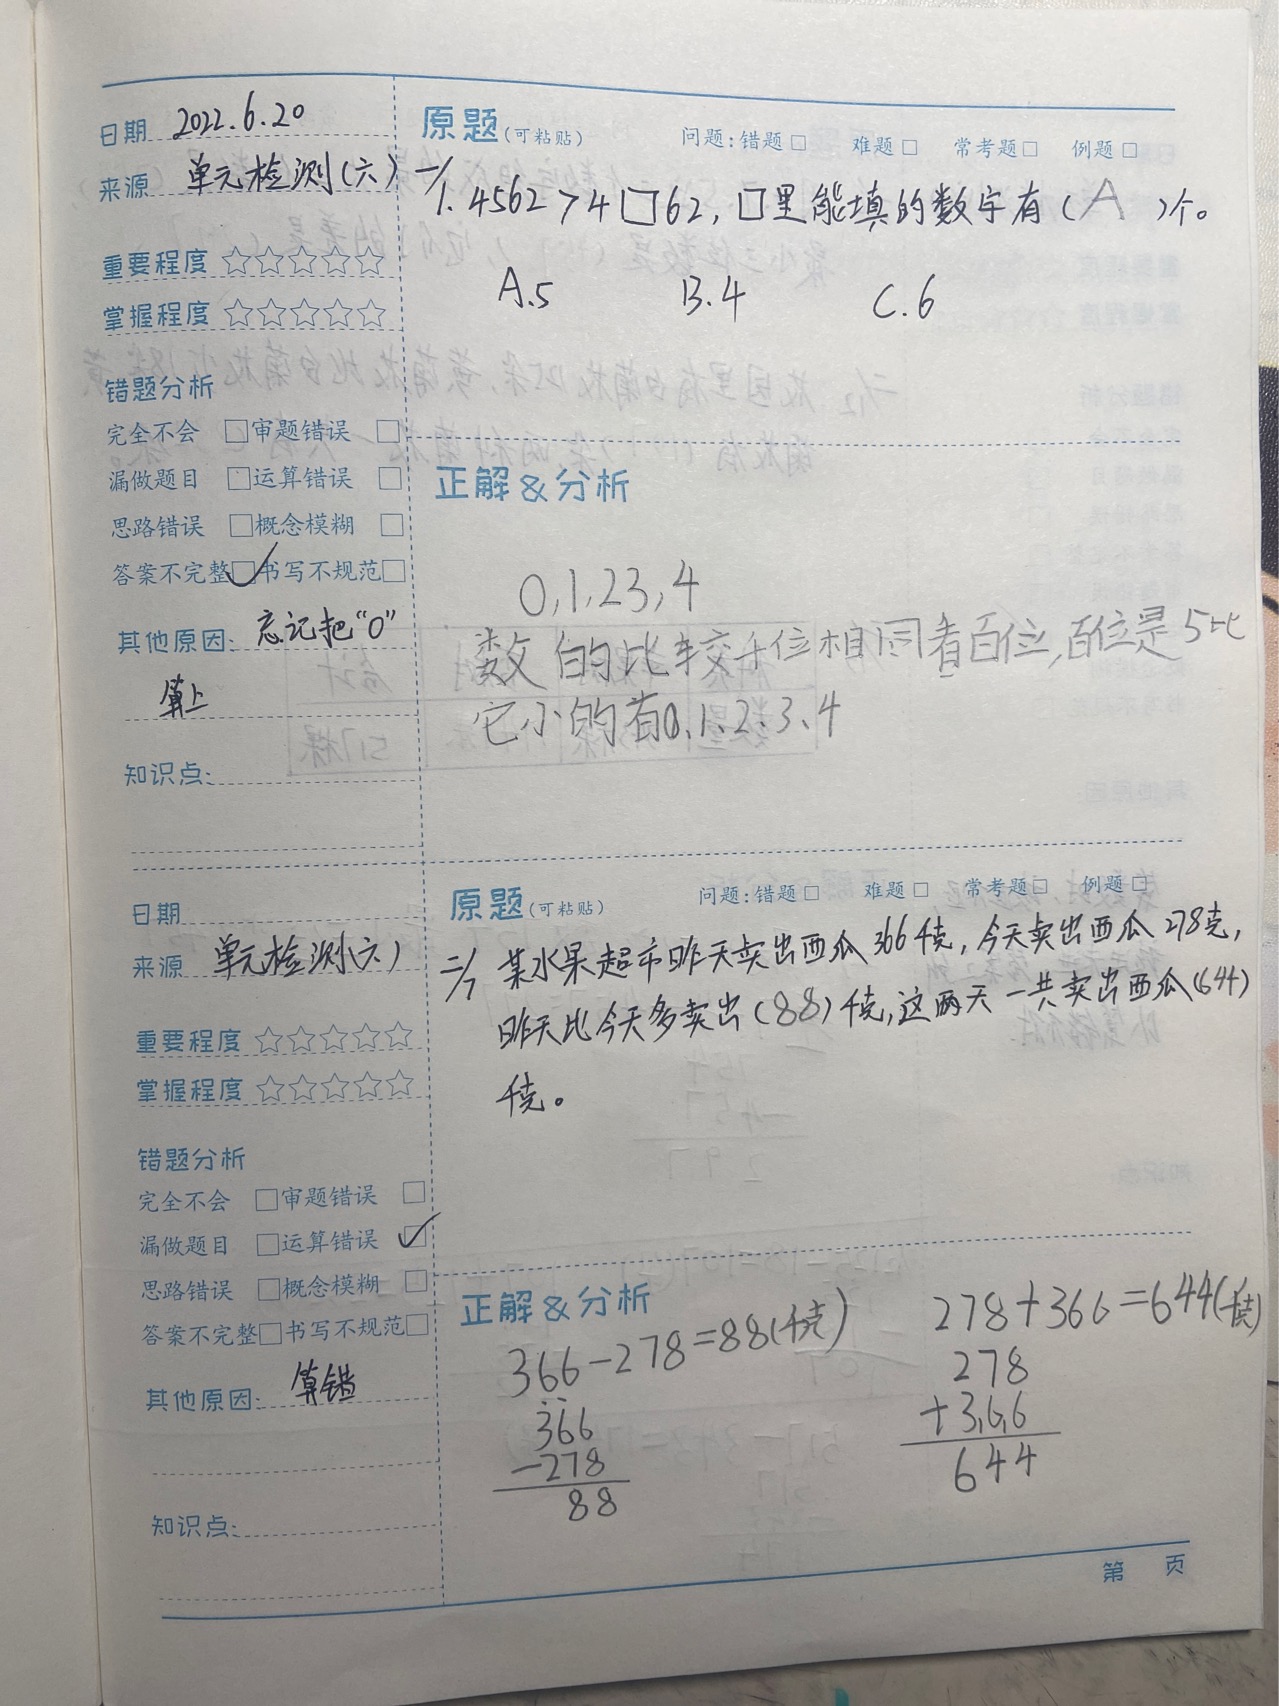 日期 2022.6.20
来源 单元检测(六)
重要程度 ☆☆☆☆☆
掌握程度 ☆☆☆☆☆
错题分析
完全不会 □ 审题错误 □
漏做题目 □ 运算错误 □
思路错误 □ 概念模糊 □
答案不完整 ☑ 书写不规范 □
其他原因: 忘记把“0”
算上
知识点:
原题(可粘贴) 问题:错题□ 难题□ 常考题□ 例题□
一/1. 4562>4□62,□里能填的数字有(A)个。
A.5 B.4 C.6
正解&分析
0,1,23,4
数的比较千位相同看百位,百位是5比
它小的有0、1、2、3、4
日期
来源 单元检测(六)
重要程度 ☆☆☆☆☆
掌握程度 ☆☆☆☆☆
错题分析
完全不会 □ 审题错误 □
漏做题目 □ 运算错误 ☑
思路错误 □ 概念模糊 □
答案不完整 □ 书写不规范 □
其他原因: 算错
知识点:
原题(可粘贴) 问题:错题□ 难题□ 常考题□ 例题□
二/7 某水果超市昨天卖出西瓜366千克,今天卖出西瓜278克,
昨天比今天多卖出(88)千克,这两天一共卖出西瓜(644)
千克。
正解&分析
366-278=88(千克)
366
-278
88
278+366=644(千克)
278
+366
644
第 页